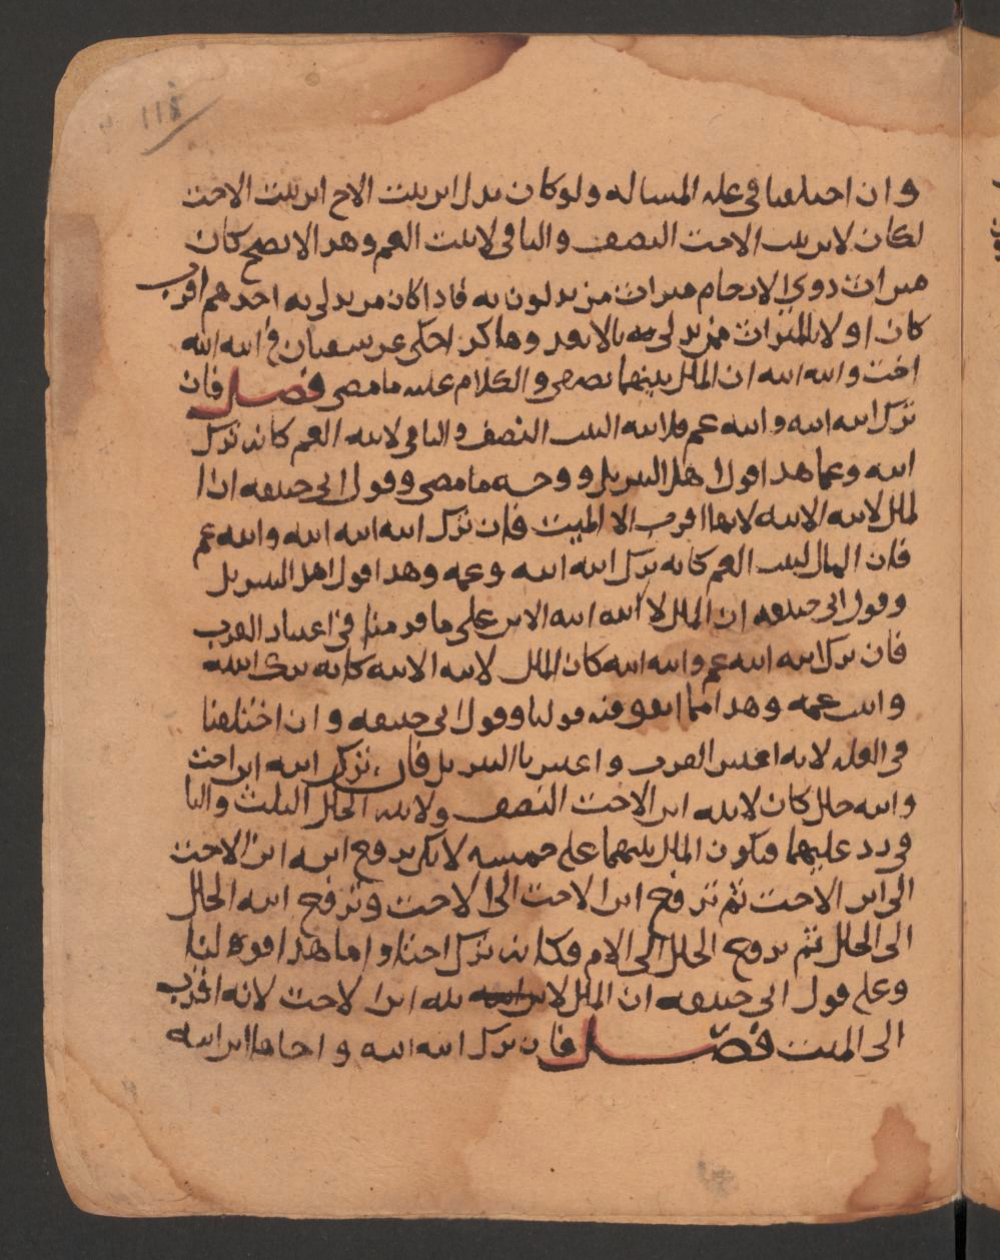 ١١٨
وان اختلفنا في علة المسالة ولو كان بدل ابن بنت الاخ ابن بنت الاخت
لكان لابن بنت الاخت النصف والباقي لابنت العم وهذا الاصح كان
ميراث ذوي الارحام ميراث من يدلون به فاذا كان من يدلي به احدهم اقرب
كان اولا بالميراث ممن يدلي به بالابعد وما كن احكي عن سفيان في ابنه ابنه
اخت وابنه ابنه ان المال بينهما نصفين والكلام عليه ما مضى فصل فان
ترك ابنه ابنه وابنه عم فلابنه البنت النصف والباقي لابنه العم كانه ترك
ابنه وعما هذا قول اهل التنزيل ووجهه ما مضى وقول ابي حنيفه ان ا
لمال لابنه الابنه لانها اقرب الا الميت فان ترك ابنه ابنه ابنه وابنه عم
فان المال لبنت العم كانه ترك ابنه ابنه وعمه وهذا قول اهل التنزيل
وقول ابي حنيفه ان المال لا ابنه ابنه الابن على ما قدمنا في اعتبار القرب
فان ترك ابنه ابنه عم وابنه ابنه كان المال لابنه الابنه كانه ترك ابنته
وابنت عمه وهذا مما اتفق فيه قولنا وقول ابي حنيفه وان اختلفنا
في العله لانه اعتبر القرب واعتبرنا التنزيل فان ترك ابنه ابن اخت
وابنه خال كان لابنه ابن الاخت النصف ولابنه الخال الثلث والبا
قي رد عليهما فيكون المال بينهما على خمسه لانك ترفع ابنه ابن الاخت
الى ابن الاخت ثم ترفع ابن الاخت الى الاخت وترفع ابنه الخال
الى الخال ثم ترفع الخال الى الام فكانه ترك اختا واما هذا قوله لنا
وعلى قول ابي حنيفه ان المال لابنه ابن الاخت لانه اقرب
الى الميت فصل فان ترك ابنه ابنه واخاها ابن ابنه